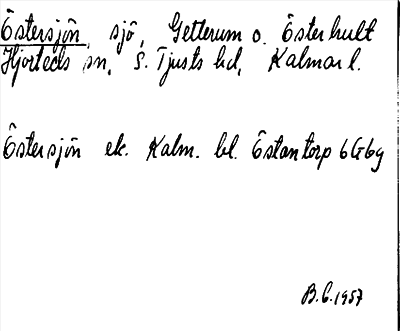 Östersjön, sjö, Getterum o. Österhult
Hjorteds sn, S. Tjusts hd, Kalmar l.
Östersjön ek. Kalm. bl. Östantorp 6G6g
B.C. 1957